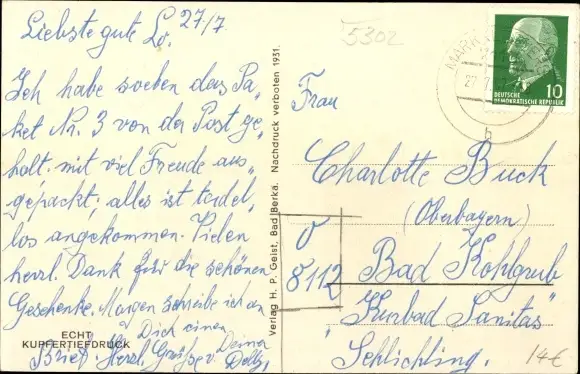 Liebste gute Lo. 27/7.
Ich habe soeben das Pa-
ket Nr. 3 von der Post ge-
holt, mit viel Freude aus-
gepackt, alles ist tadel-
los angekommen. Vielen
herzl. Dank für die schönen
Geschenke. Morgen schreibe ich an
Dich einen
Brief. Herzl. Grüße v. Deiner
ECHT
KUPFERTIEFDRUCK
Verlag H. P. Geist, Bad Berka. Nachdruck verboten 1931.
5302
MARK
27.7.
b
10
DEUTSCHE
DEMOKRATISCHE REPUBLIK
Frau
Charlotte Buck
(Oberbayern)
8112 Bad Kohlgrub
"Kurbad Sanitas"
Schlichting.
14€